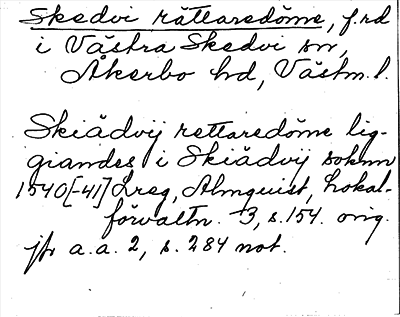 Skedvi rättaredöme, f.rd
i Västra Skedvi sn,
Åkerbo hd, Västm.l.
Skiädvij rettaredöme lig-
giandes i Skiädvij soknn
1540[-41] Lreg, Almquist, Lokal-
förvaltn. 3, s.154. orig.
jfr a.a. 2, s. 284 not.